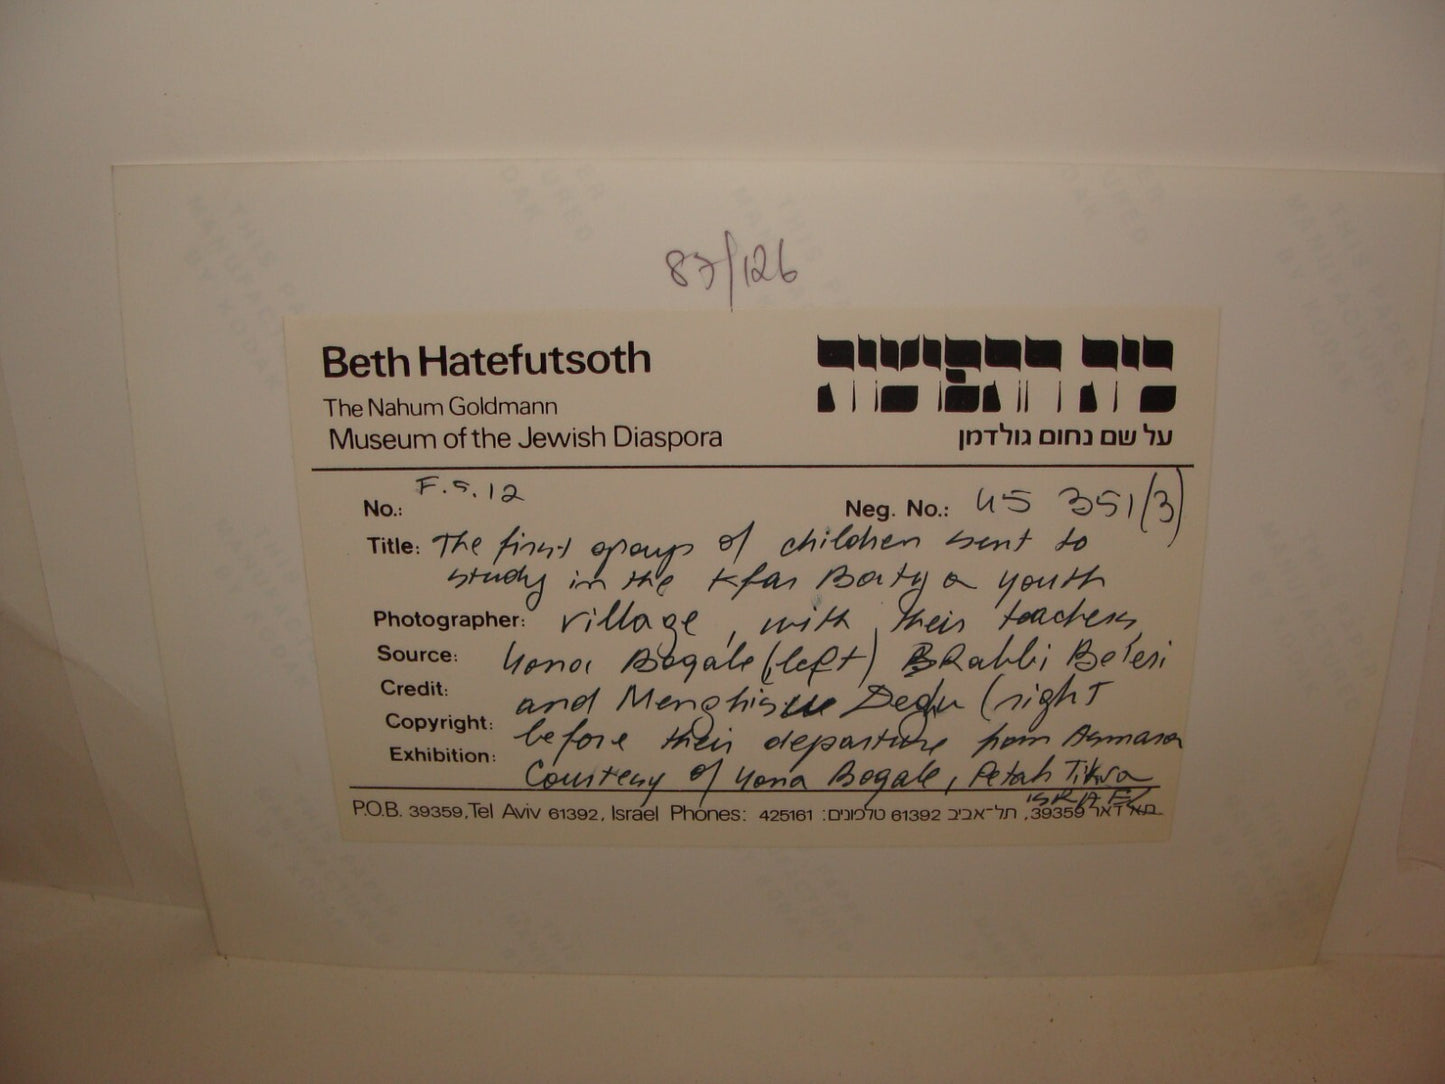 87/126
Beth Hatefutsoth
בית התפוצות
The Nahum Goldmann
Museum of the Jewish Diaspora
על שם נחום גולדמן
No.: F.S.12 Neg. No.: U5 351(3)
Title: The first group of children sent to
study in the Kfar Batya youth
Photographer: village, with their teachers,
Source: Yona Bogale (left) Rabbi
Credit: and Menghistu Degu (right
Copyright: before their departure from Asmara
Exhibition: Courtesy of Yona Bogale, Petah Tikva
ISRAEL
P.O.B. 39359, Tel Aviv 61392, Israel Phones: 425161 :טלפונים 61392 תל-אביב ,39359 דאר
THIS PAPER
MANUFACTURED
BY KODAK